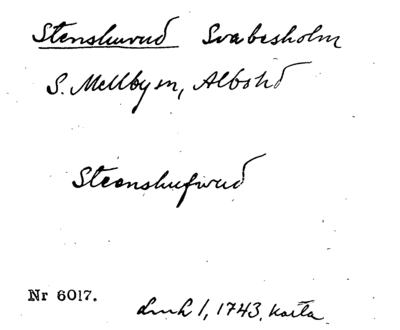 Stenshuvud Svabesholm
S. Mellby sn, Albo hd
Steenshufwud
Nr 6017.
Lmk 1, 1743, karta